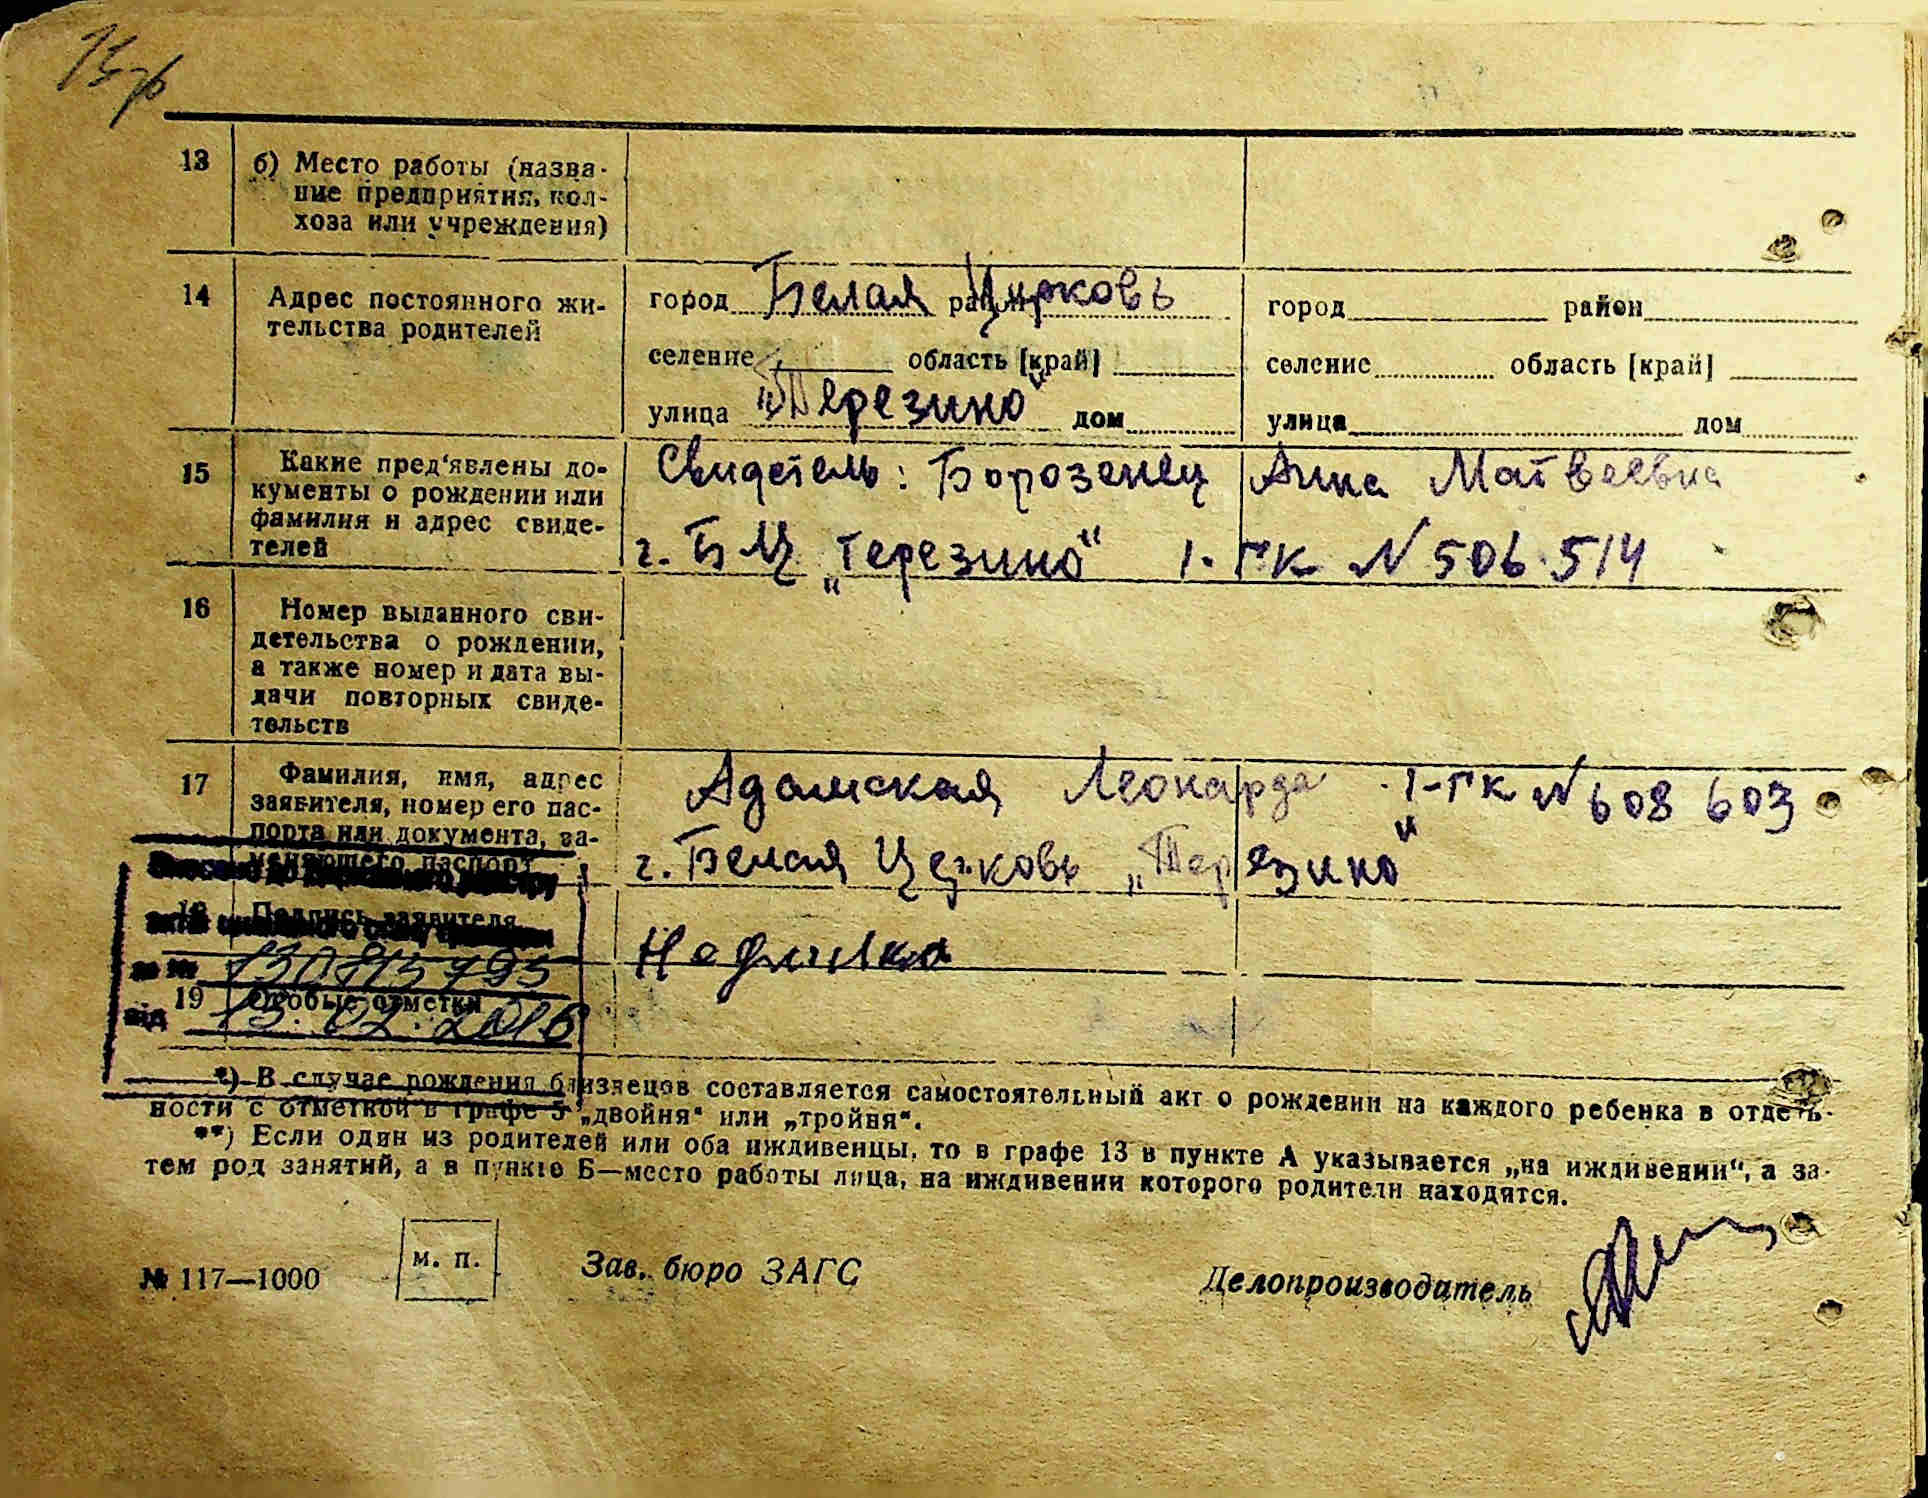 13 б) Место работы (назва-
ние предприятия, кол-
хоза или учреждения)
14 Адрес постоянного жи-
тельства родителей
город Белая район Церковь
селение область [край]
улица „Терезино“ дом
город район
селение область [край]
улица дом
15 Какие пред'явлены до-
кументы о рождении или
фамилия и адрес свиде-
телей
Свидетель: Борозенец Анна Матвеевна
г. БЦ „Терезино“ 1-ГК N 506 514
16 Номер выданного сви-
детельства о рождении,
а также номер и дата вы-
дачи повторных свиде-
тельств
17 Фамилия, имя, адрес
заявителя, номер его пас-
порта или документа, за-
меняющего паспорт
Адамская Леонарда 1-ГК N 608 603
г. Белая Церковь „Терезино“
18 Подпись заявителя
19 Особые отметки
від 15.02.2016
*) В случае рождения близнецов составляется самостоятельный акт о рождении на каждого ребенка в отдель-
ности с отметкой в графе 5 „двойня“ или „тройня“.
**) Если один из родителей или оба иждивенцы, то в графе 13 в пункте А указывается „на иждивении“, а за-
тем род занятий, а в пункте Б—место работы лица, на иждивении которого родители находятся.
№ 117—1000
м. п.
Зав. бюро ЗАГС
Делопроизводитель